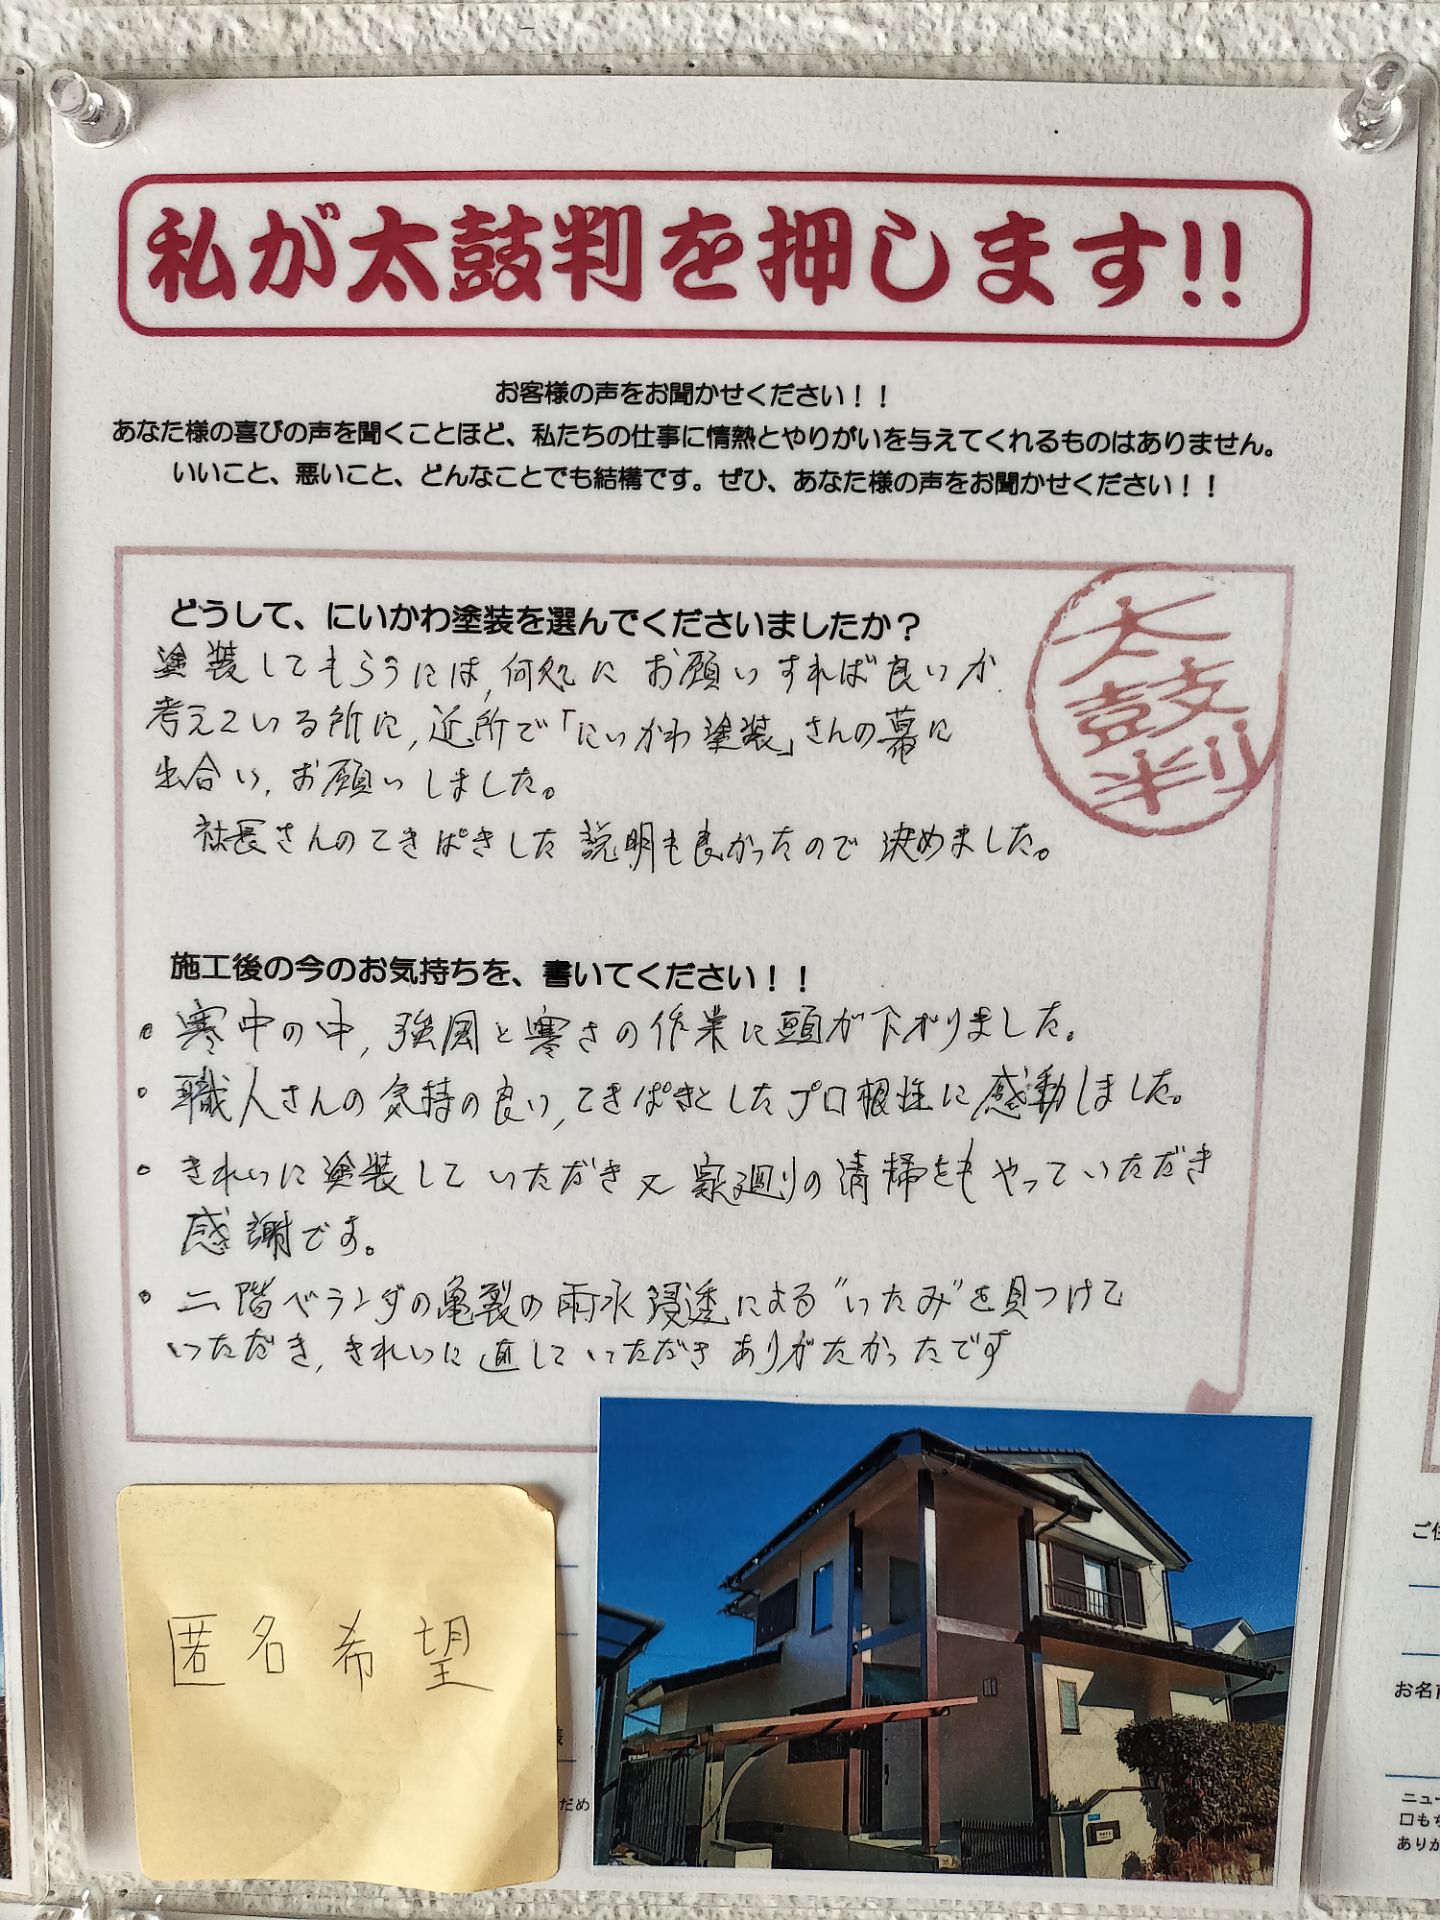 私が太鼓判を押します!!
お客様の声をお聞かせください！！
あなた様の喜びの声を聞くことほど、私たちの仕事に情熱とやりがいを与えてくれるものはありません。
いいこと、悪いこと、どんなことでも結構です。ぜひ、あなた様の声をお聞かせください！！
太鼓判
どうして、にいかわ塗装を選んでくださいましたか？
塗装してもらうには、何処にお願いすれば良いか
考えている所に、近所で「にいかわ塗装」さんの幕に
出合い、お願いしました。
社長さんのてきぱきした説明も良かったので決めました。
施工後の今のお気持ちを、書いてください！！
・寒中の中、強風と寒さの作業に頭が下がりました。
・職人さんの気持の良い、てきぱきとしたプロ根性に感動しました。
・きれいに塗装していただき又家廻りの清掃をもやっていただき
感謝です。
・二階ベランダの亀裂の雨水浸透による"いたみ"を見つけて
いただき、きれいに直していただきありがたかったです
匿名希望
だめ
ご住
お名前
ニュー
口もち
ありが